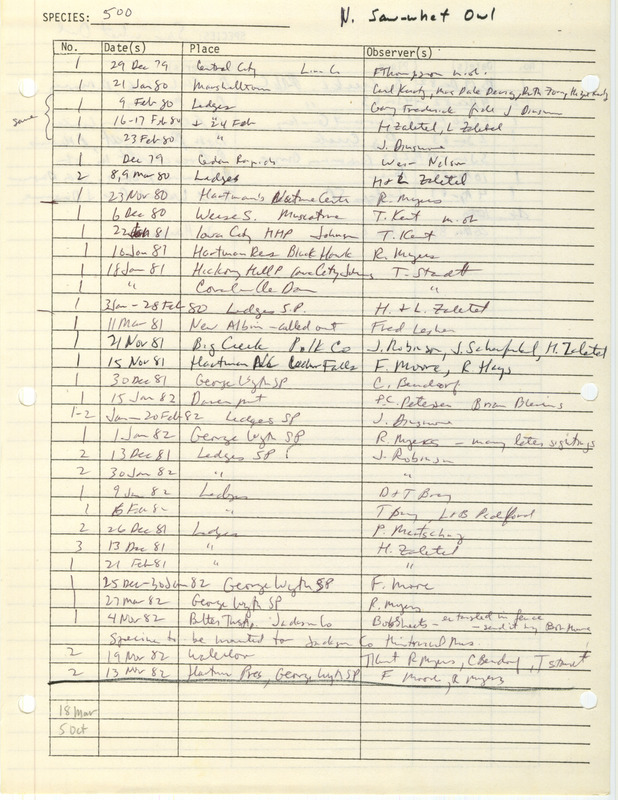 SPECIES: 500 N. Saw-whet Owl
No. Date(s) Place Observer(s)
1 29 Dec 79 Central City Linn Co F Thompson m.ob.
1 21 Jan 80 Marshalltown Carl Kurtz, Mrs Dale
same 1 9 Feb 80 Ledges Gary Frederick fide J Dinsmore
1 16-17 Feb 80 & 24 Feb " H Zaletel, L Zaletel
1 23 Feb 80 " J. Dinsmore
1 Dec 79 Cedar Rapids Weir Nelson
2 8,9 Mar 80 Ledges H & L Zaletel
1 23 Nov 80 Hartman's Nature Center R. Myers
1 6 Dec 80 Weise S. Muscatine T. Kent m.ob
1 81 Iowa City HMP Johnson T. Kent
1 10 Jan 81 Hartman Res Black Hawk R. Myers
1 18 Jan 81 Hickory Hill P Iowa City Johns T. Staudt
1 " Coralville Dam "
1 3 Jan - 28 Feb 80 Ledges S.P. H. & L. Zaletel
1 11 Mar 81 New Albin - called out Fred Lesher
1 21 Nov 81 Big Creek Polk Co J. Robinson, J. Scharfenkel, H. Zaletel
1 15 Nov 81 Hartman Cedar Falls F. Moore, R Hays
1 30 Dec 81 George Wyth SP C. Bendorf
1 15 Jan 82 Davenport P.C. Petersen Brian Blevins
1-2 Jan-20 Feb 82 Ledges SP J. Dinsmore
1 1 Jan 82 George Wyth SP R. Myers - many later sightings
2 13 Dec 81 Ledges SP J. Robinson
2 30 Jan 82 " "
1 9 Jan 82 Ledges D & T Bray
1 6 Feb 82 " T Bray L & B Padelford
2 26 Dec 81 Ledges P. Martsching
3 13 Dec 81 " H. Zaletel
1 21 Feb 81 " "
1 25 Dec-30 Jan 82 George Wyth SP F. Moore
1 27 Mar 82 George Wyth SP R. Myers
1 4 Nov 82 Jackson Co Bob Sheets - in fence -
Specimen to be mounted for Jackson Co Historical Mus.
2 19 Nov 82 Waterloo T Kent R Myers, C Bendorf, T Staudt
2 13 Nov 82 Hartman Pres, George Wyth SP F Moore, R Myers
18 Mar
5 Oct